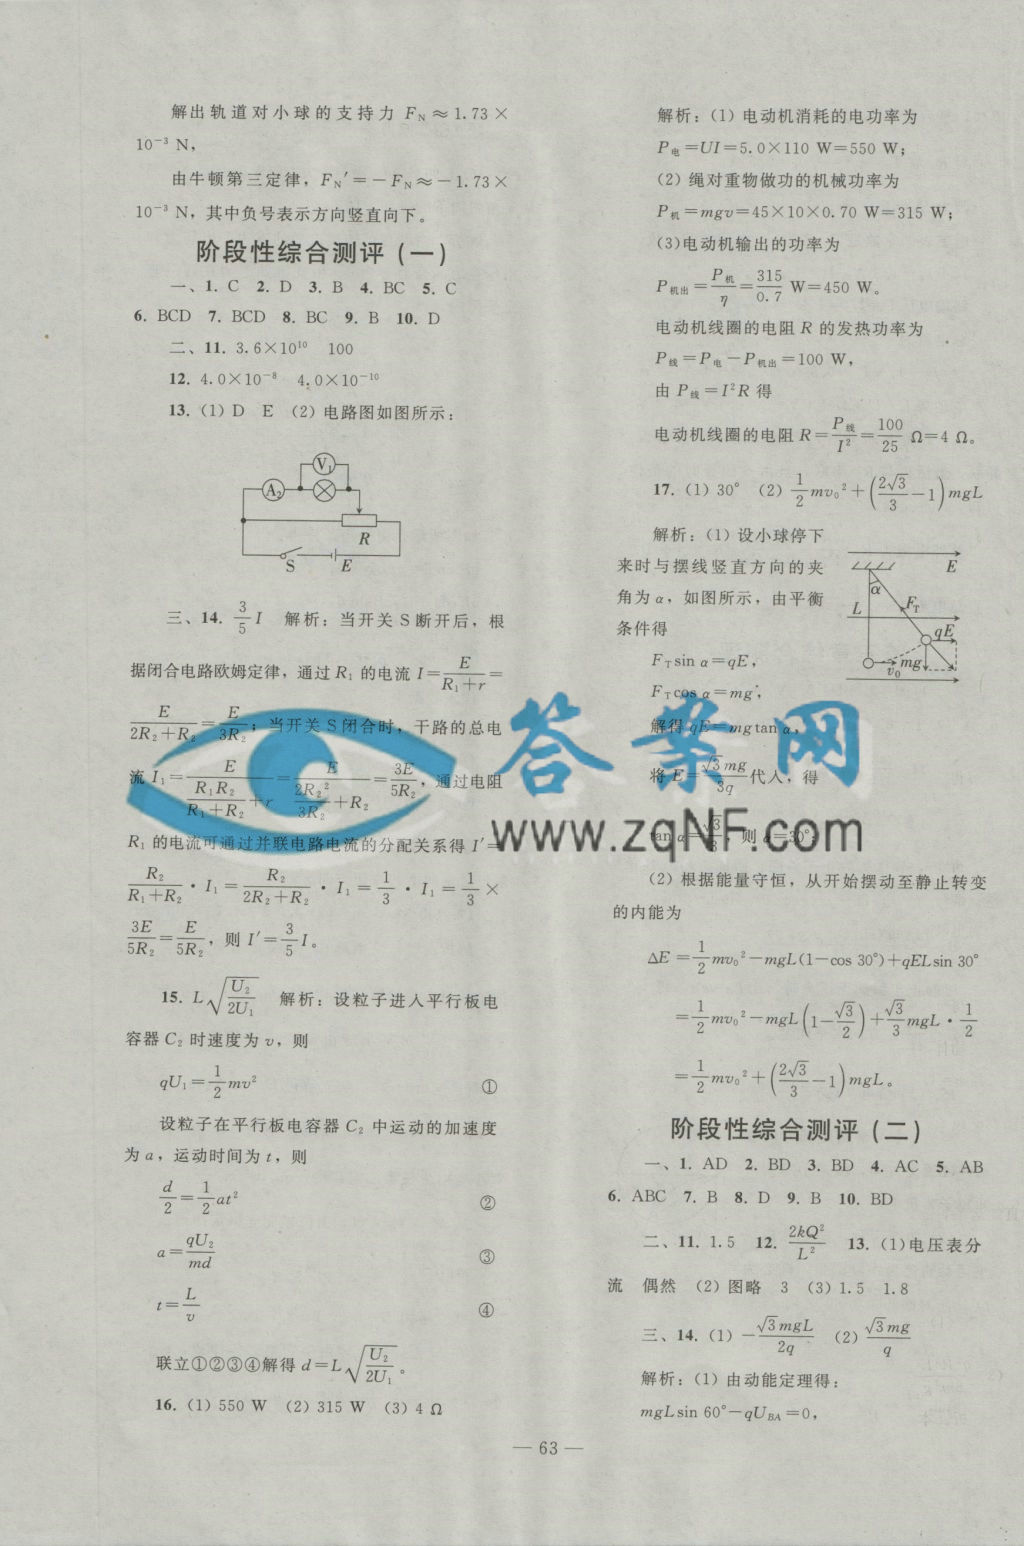 解出轨道对小球的支持力 F_N≈1.73×
10⁻³ N，
由牛顿第三定律，F_N′=－F_N≈－1.73×
10⁻³ N，其中负号表示方向竖直向下。
阶段性综合测评(一)
一、1. C 2. D 3. B 4. BC 5. C
6. BCD 7. BCD 8. BC 9. B 10. D
二、11. 3.6×10¹⁰ 100
12. 4.0×10⁻⁸ 4.0×10⁻¹⁰
13. (1) D E (2) 电路图如图所示：
V₁
A₂
R
S E
三、14. 3/5 I 解析：当开关 S 断开后，根
据闭合电路欧姆定律，通过 R₁ 的电流 I=E/(R₁+r)=
E/(2R₂+R₂)=E/(3R₂)；当开关 S 闭合时，干路的总电
流 I₁=E/(R₁R₂/(R₁+R₂)+r)=E/(2R₂²/(3R₂)+R₂)=3E/(5R₂)，通过电阻
R₁ 的电流可通过并联电路电流的分配关系得 I′=
R₂/(R₁+R₂)·I₁=R₂/(2R₂+R₂)·I₁=1/3·I₁=1/3×
3E/(5R₂)=E/(5R₂)，则 I′=3/5 I。
15. L√(U₂/(2U₁)) 解析：设粒子进入平行板电
容器 C₂ 时速度为 v，则
qU₁=1/2 mv² ①
设粒子在平行板电容器 C₂ 中运动的加速度
为 a，运动时间为 t，则
d/2=1/2 at² ②
a=qU₂/(md) ③
t=L/v ④
联立①②③④解得 d=L√(U₂/(2U₁))。
16. (1) 550 W (2) 315 W (3) 4 Ω
解析：(1) 电动机消耗的电功率为
P电=UI=5.0×110 W=550 W；
(2) 绳对重物做功的机械功率为
P机=mgv=45×10×0.70 W=315 W；
(3)电动机输出的功率为
P机出=P机/η=315/0.7 W=450 W。
电动机线圈的电阻 R 的发热功率为
P线=P电－P机出=100 W，
由 P线=I²R 得
电动机线圈的电阻 R=P线/I²=100/25 Ω=4 Ω。
17. (1) 30° (2) 1/2 mv₀²+(2√3/3－1)mgL
解析：(1) 设小球停下
来时与摆线竖直方向的夹
角为 α，如图所示，由平衡
条件得
E
α
L F_T
qE
v₀ mg
F_T sin α=qE，
F_T cos α=mg，
解得 qE=mgtan α，
将 E=√3mg/(3q) 代人，得
tan α=√3/3，则 α=30°；
(2) 根据能量守恒，从开始摆动至静止转变
的内能为
ΔE=1/2 mv₀²－mgL(1－cos 30°)+qELsin 30°
=1/2 mv₀²－mgL(1－√3/2)+√3/3 mgL·1/2
=1/2 mv₀²+(2√3/3－1)mgL。
阶段性综合测评(二)
一、1. AD 2. BD 3. BD 4. AC 5. AB
6. ABC 7. B 8. D 9. B 10. BD
二、11. 1.5 12. 2kQ²/L² 13. (1)电压表分
流 偶然 (2) 图略 3 (3) 1.5 1.8
三、14. (1) －√3mgL/(2q) (2) √3mg/q
解析：(1) 由动能定理得：
mgLsin 60°－qU_BA=0，
— 63 —
答案网
www.zqNF.com